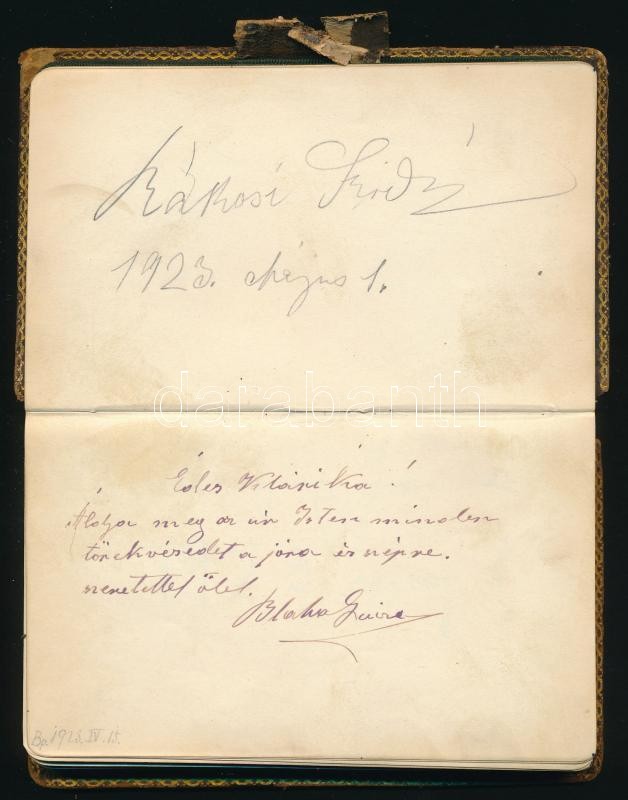 Rákosi Szidi
1923. Május 1.
darabanth
Édes Klárika!
Áldja meg az úr Isten minden
törekvésedet a jóra és szépre.
szeretettel ölel.
Blaha Lujza
Bp. 1923. IV. 15.